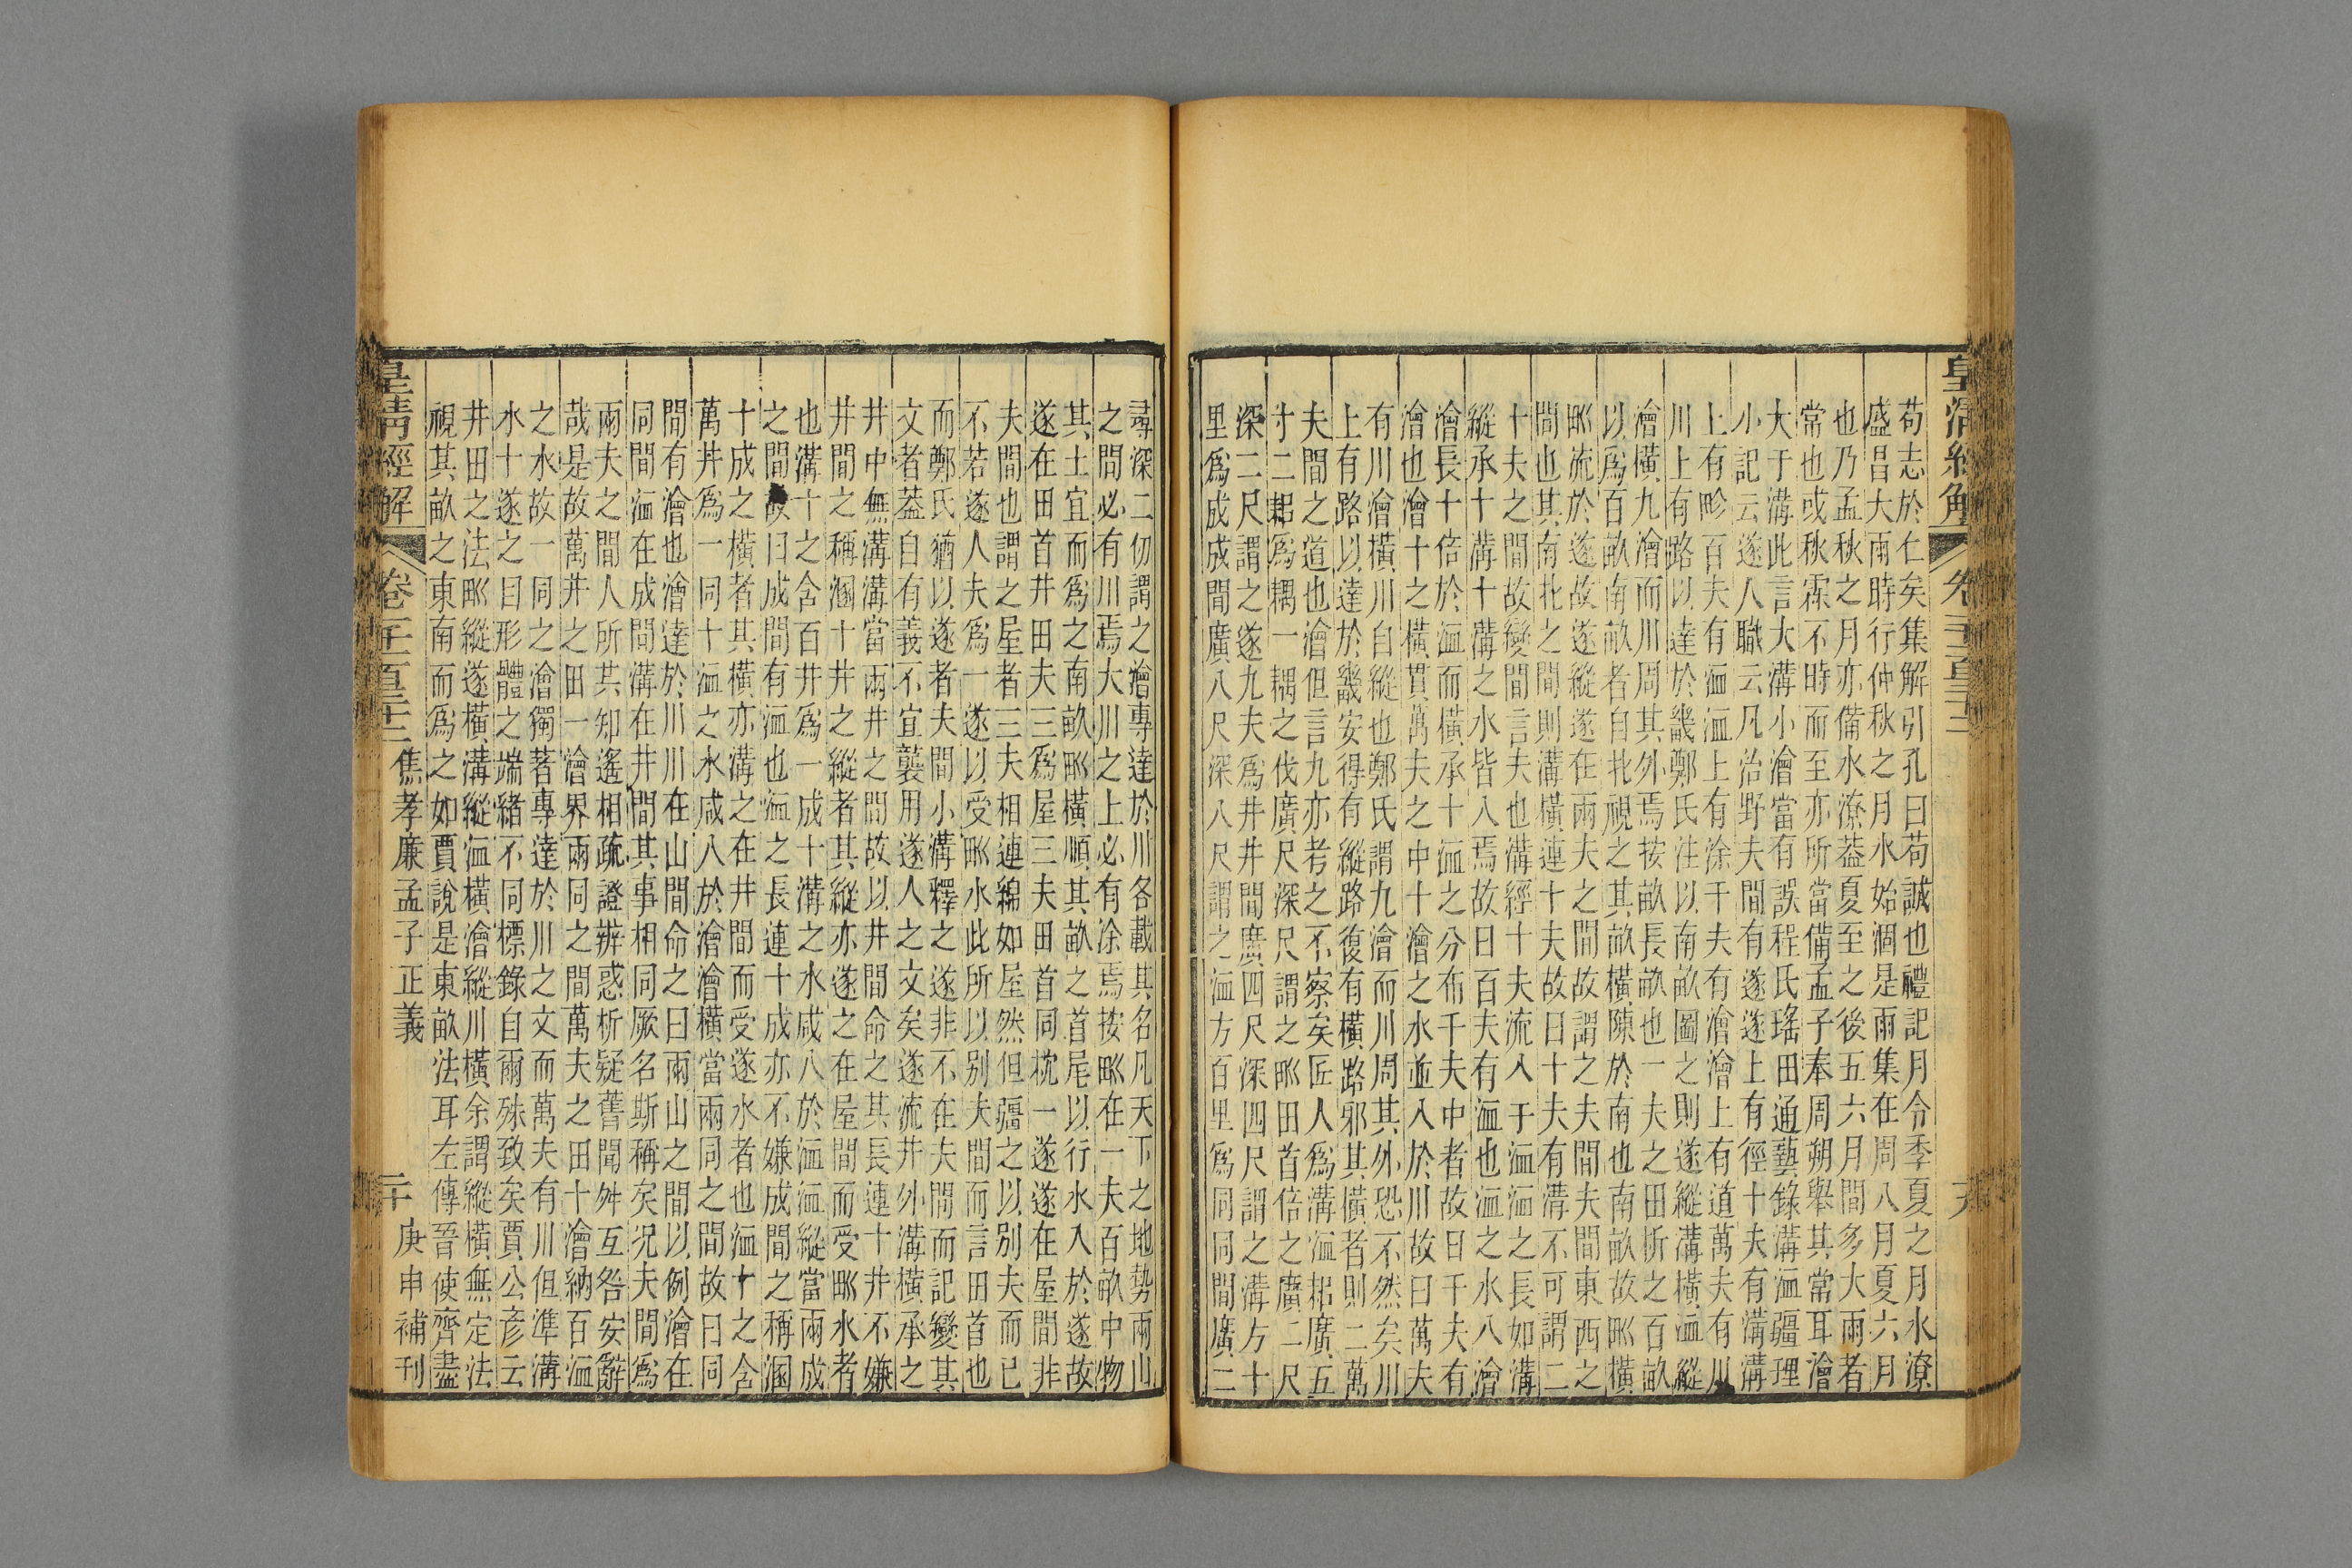 皇清經解
苟志於仁矣集解引孔曰苟誠也禮記月令季夏之月水潦
盛昌大雨時行仲秋之月水始涸是雨集在周八月夏六月
也乃孟秋之月亦備水潦葢夏至之後五六月間多大雨者
常也或秋霖不時而至亦所當備孟子奉周朔舉其常耳澮
大于溝此言大溝小澮當有誤程氏瑤田通藝錄溝洫疆理
小記云遂人職云凡治野夫間有遂遂上有徑十夫有溝溝
上有畛百夫有洫洫上有涂千夫有澮澮上有道萬夫有川
川上有路以達於畿鄭氏注以南畝圖之則遂縱溝橫洫縱
澮橫九澮而川周其外焉按畝長畝也一夫之田析之百畝
以爲百畝南畝者自北視之其畝橫陳於南也南畝故甽橫
甽流於遂故遂縱遂在兩夫之間故謂之夫間夫間東西之
間也其南北之間則溝橫連十夫故曰十夫有溝不可謂二
十夫之間故變間言夫也溝經十夫流入于洫洫之長如溝
縱承十溝十溝之水皆入焉故曰百夫有洫也洫之水入澮
澮長十倍於洫而橫承十洫之分布千夫中者故曰千夫有
澮也澮十之橫貫萬夫之中十澮之水並入於川故曰萬夫
有川澮橫川自縱也鄭氏謂九澮而川周其外恐不然矣川
上有路以達於畿安得有縱路復有橫路邪其橫者則二萬
夫間之道也澮但言九亦考之不察矣匠人爲溝洫耜廣五
寸二耜爲耦一耦之伐廣尺深尺謂之甽田首倍之廣二尺
深二尺謂之遂九夫爲井井間廣四尺深四尺謂之溝方十
里爲成成間廣八尺深八尺謂之洫方百里爲同同間廣二
尋深二仞謂之澮專達於川各載其名凡天下之地勢兩山
之間必有川焉大川之上必有涂焉按甽在一夫百畝中物
其土宜而爲之南畝甽橫順其畝之首尾以行水入於遂故
遂在田首井田夫三爲屋三夫田首同枕一遂遂在屋間非
夫間也謂之屋者三夫相連綿如屋然但疆之以別夫而已
不若遂人夫爲一遂以受甽水此所以別夫間而言田首也
而鄭氏猶以遂者夫間小溝釋之遂非不在夫間而記變其
文者葢自有義不宜襲用遂人之文矣遂流井外溝橫承之
井中無溝溝當兩井之間故以井間命之其長連十井不嫌
井間之稱溷十井之縱者其縱亦遂之在屋間而受甽水者
也溝十之含百井爲一成十溝之水咸入於洫洫縱當兩成
之間故曰成間有洫也洫之長連十成亦不嫌成間之稱溷
十成之橫者其橫亦溝之在井間而受遂水者也洫十之含
萬井爲一同十洫之水咸入於澮澮橫當兩同之間故曰同
間有澮也澮達於川川在山間命之曰兩山之間以例澮在
同間洫在成間溝在井間其事相同厥名斯稱矣況夫間爲
兩夫之間人所共知遙相疏證辨惑析疑舊聞舛互咎安辭
哉是故萬井之田一澮界兩同之間萬夫之田十澮納百洫
之水故一同之澮獨著專達於川之文而萬夫有川但準溝
水十遂之目形體之端緒不同標錄自爾殊致矣賈公彥云
井田之法甽縱遂橫溝縱洫橫澮縱川橫余謂縱橫無定法
視其畝之東南而爲之如賈說是東畝法耳左傳晉使齊盡
皇清經解 焦孝廉孟子正義 二十 庚申補刊